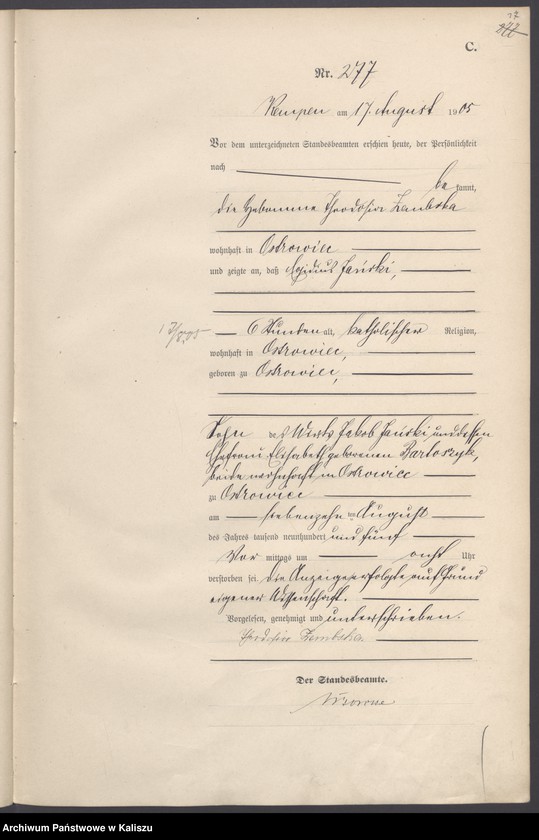 C.
Nr. 277
Kempen am 17. August 1905
Vor dem unterzeichneten Standesbeamten erschien heute, der Persönlichkeit
nach
be kannt,
die Hebamme Theodosia Zembska
wohnhaft in Ostrowiec
und zeigte an, daß Egidius Jański,
6 Stunden alt, katholischer Religion,
wohnhaft in Ostrowiec,
geboren zu Ostrowiec,
Sohn des Wirts Jakob Jański und dessen
Ehefrau Elisabeth geborenen Bartoszyk,
beide wohnhaft in Ostrowiec
zu Ostrowiec
am siebenzehn ten August
des Jahres tausend neunhundert und fünf
Vor mittags um acht Uhr
verstorben sei. Die Anzeige erfolgte auf Grund
eigener Wissenschaft.
Vorgelesen, genehmigt und unterschrieben.
Theodosia Zembska
Der Standesbeamte.
Archiwum Państwowe w Kaliszu